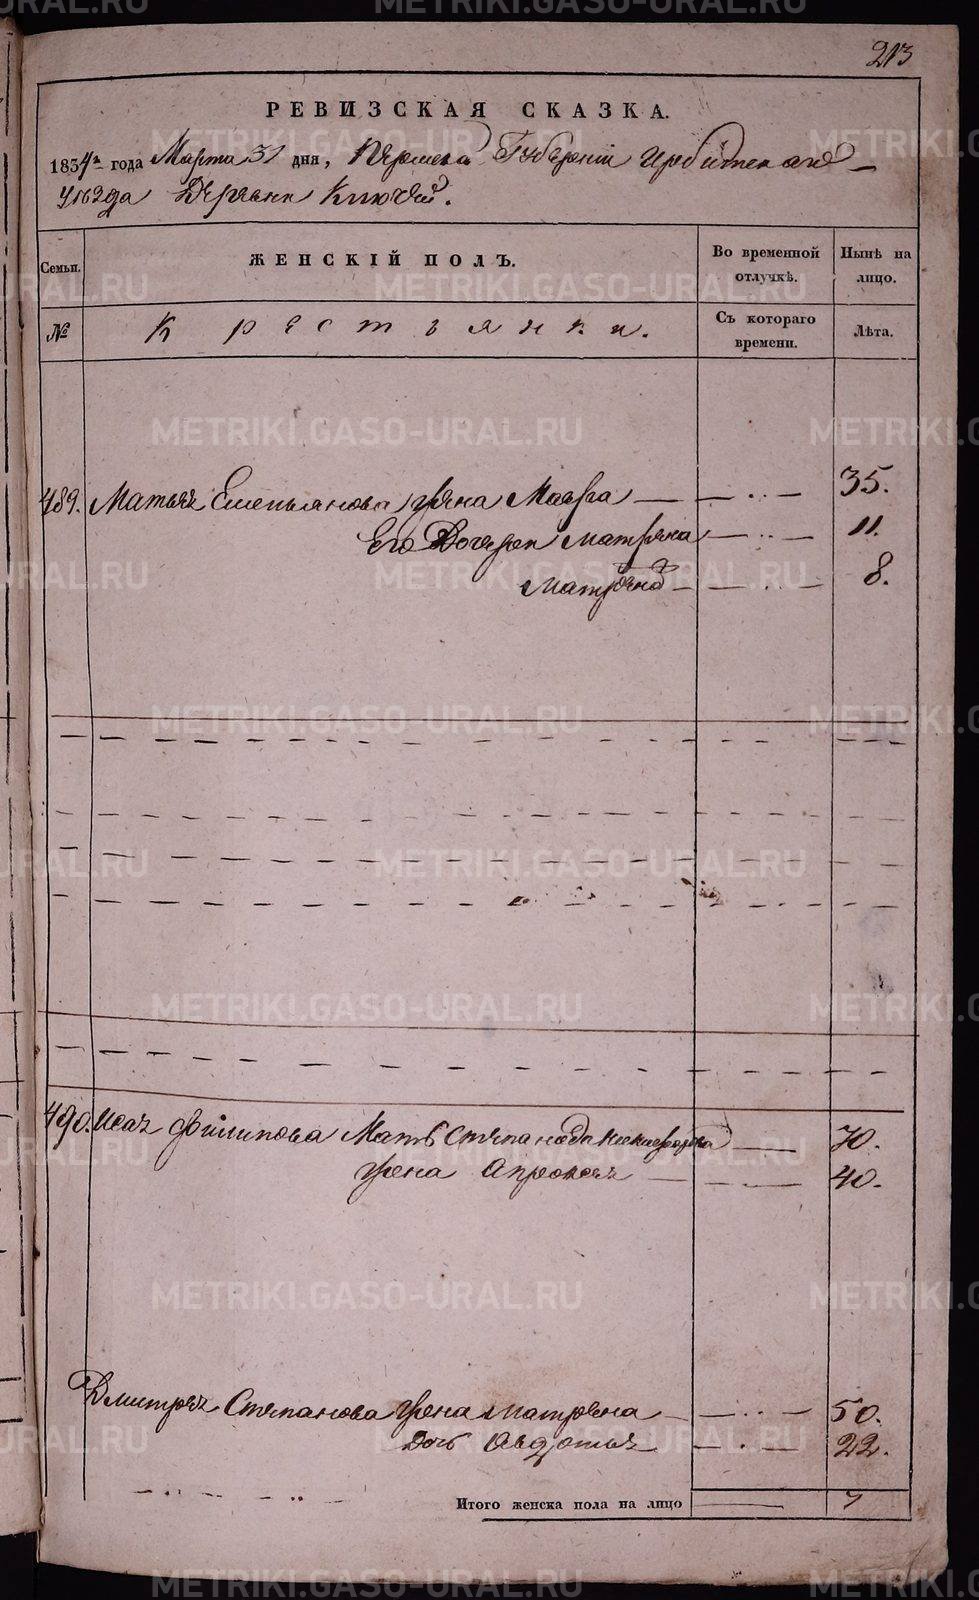 213
РЕВИЗСКАЯ СКАЗКА.
1834го года Марта 31 дня, Пермской Губерніи Ирбитскаго
уѣзда Деревни Ключей.
Семьи. ЖЕНСКІЙ ПОЛЪ. Во временной отлучкѣ. Нынѣ на лицо.
№ Крестьянки. Съ котораго времени. Лѣта.
489. Матвея Емельянова жена Мавра 35.
Его Дочери Матрена 11.
Матрена 8.
490. Исая Филипова Мать Степанида Никифорова 70.
жена Апросья 40.
Дмитрея Степанова жена Матрена 50.
дочь Авдотья 22.
Итого женска пола на лицо 7
METRIKI.GASO-URAL.RU